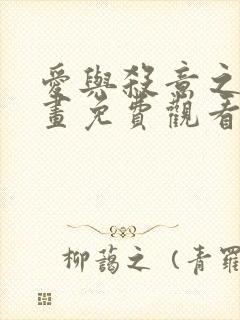 愛與殺意之
畫免費觀看
柳藹之 (青羅